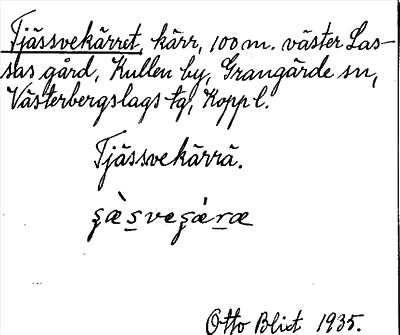 Tjässvekärret, kärr, 100 m. väster Las-
sas gård, Kullen by, Grangärde sn,
Västerbergslags tg, Kopp l.
Tjässvekärrä.
Otto Blixt 1935.